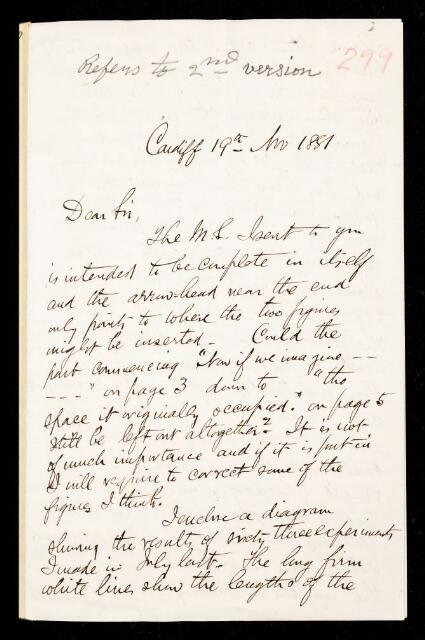 299
Refers to 2nd version
Cardiff 19th Nov 1881
Dear Sir,
The M.S. I sent to you
is intended to be complete in itself
and the arrow-head near the end
only points to where the two figures
might be inserted. Could the
part commencing "Now if we imagine --
---" on page 3 down to "the
space it originally occupied." on page 5
still be left out altogether? It is not
of much importance and if it is put in
I will require to correct some of the
figures I think.
I enclose a diagram
showing the results of sixty three experiments
I made in July last. The long firm
white lines show the lengths of the